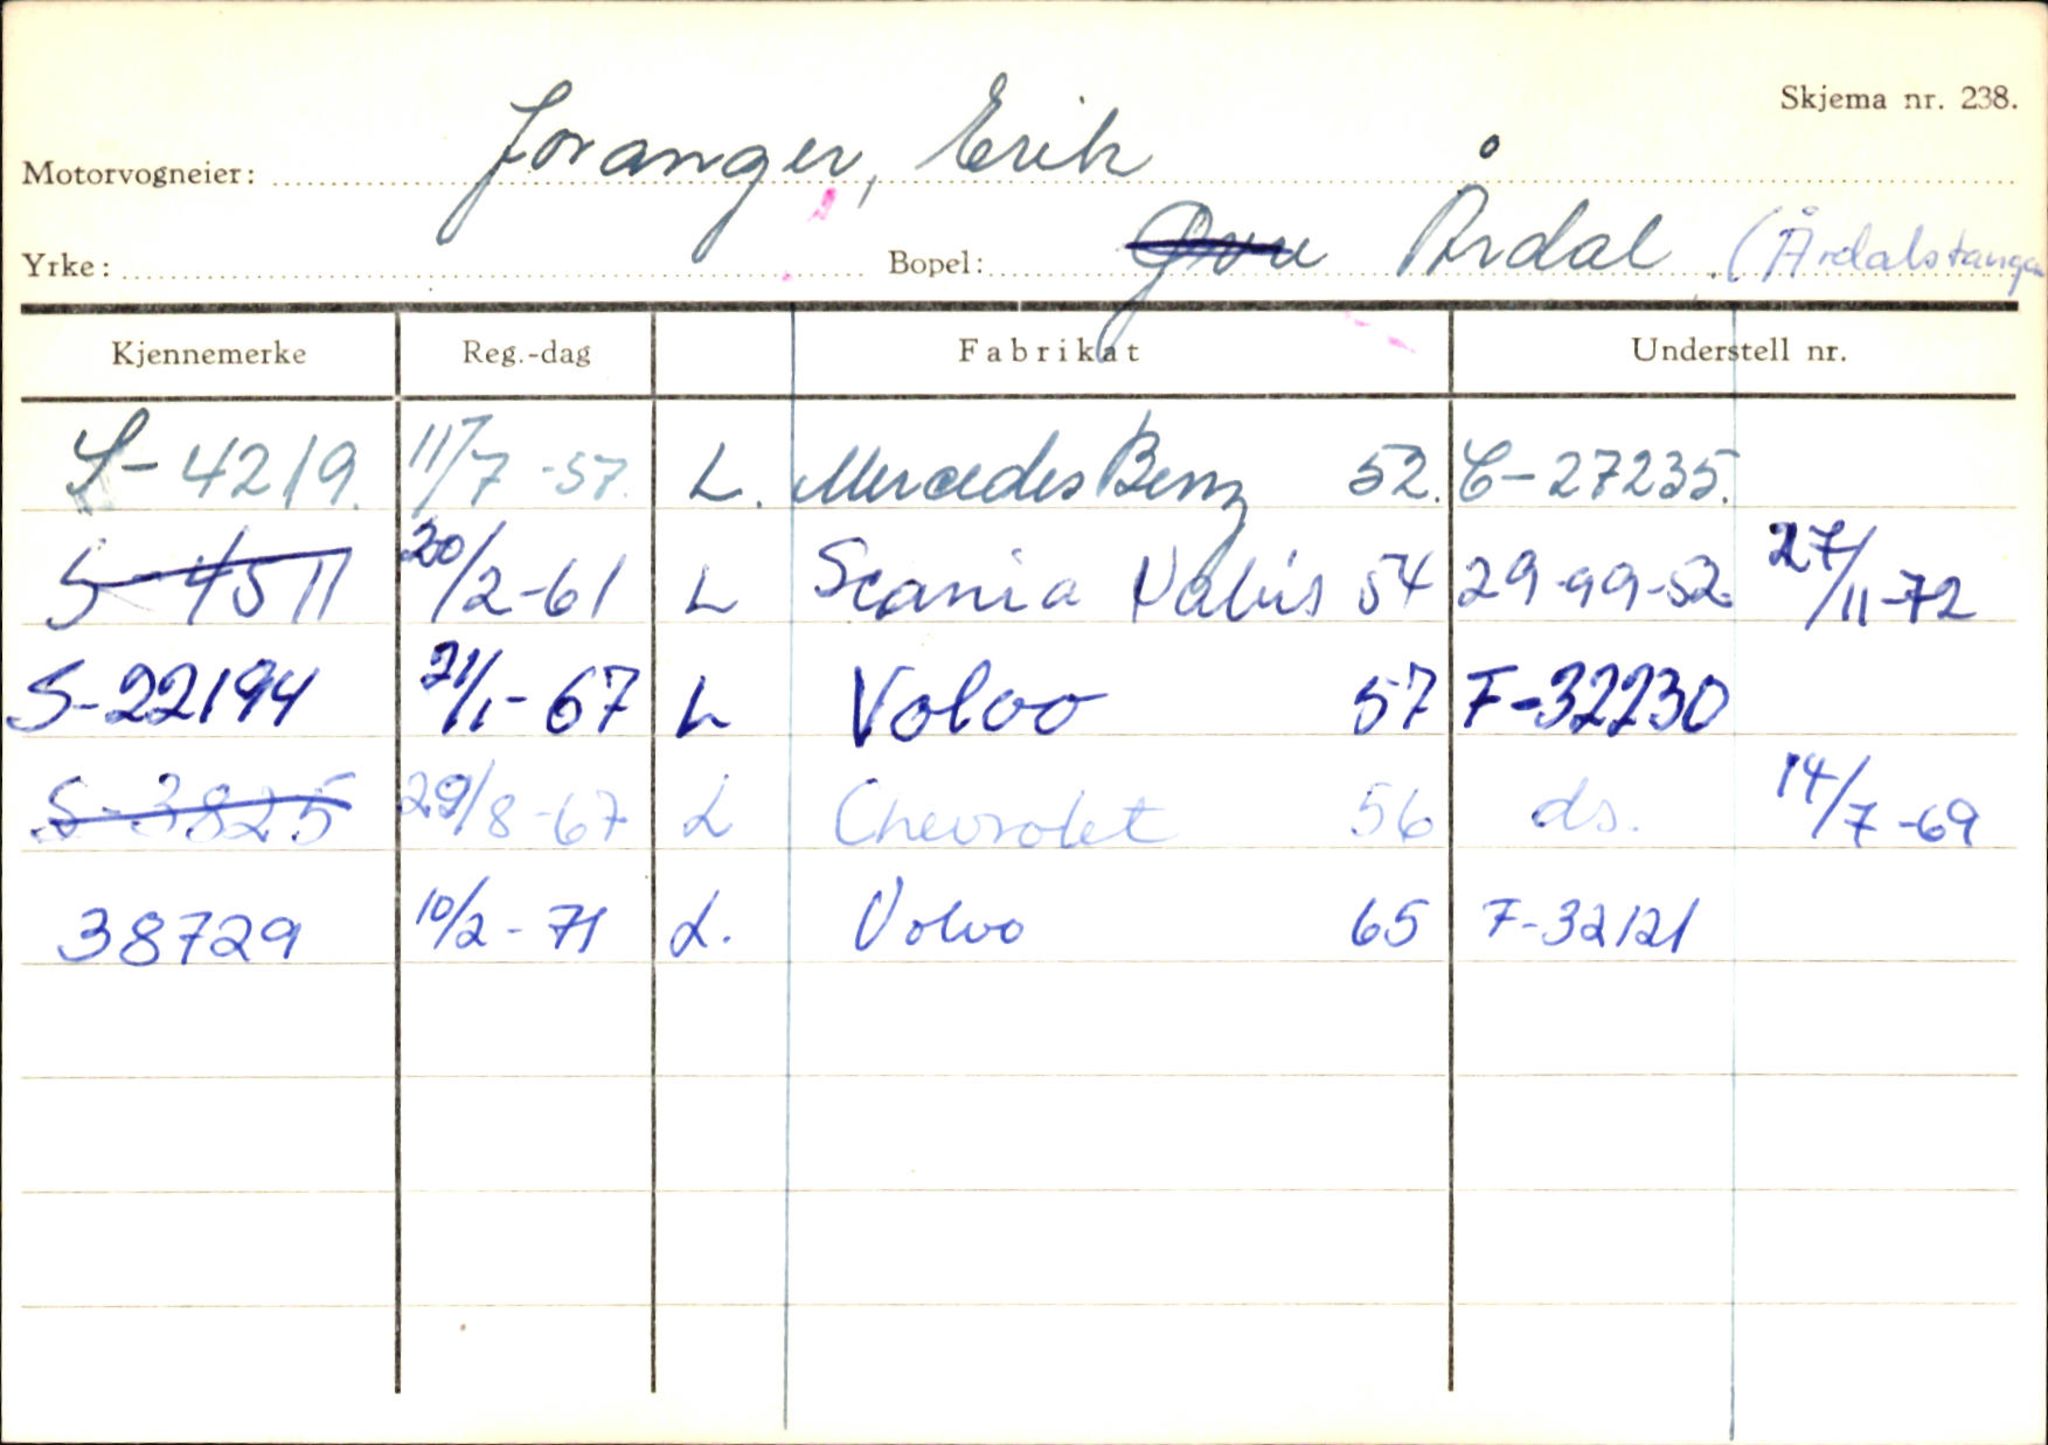 Skjema nr. 238.
Motorvogneier: Joranger, Erik
Yrke: Bopel: Øvre Årdal (Årdalstangen
Kjennemerke Reg.-dag Fabrikat Understell nr.
S-4219. 11/7-57. L. Mercedes Benz 52. C-27235.
S-4511 20/2-61 L Scania Vabis 54 29-99-52. 27/11-72
S-22194 21/1-67 L Volvo 57 F-32230
S-3825 29/8-67 L Chevrolet 56 ds. 14/7-69
38729 10/2-71 L. Volvo 65 F-32121